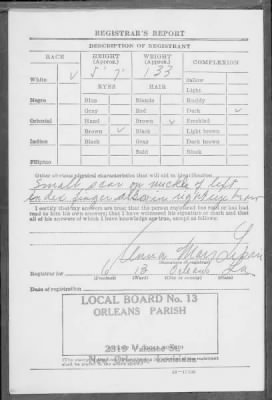 REGISTRAR'S REPORT
DESCRIPTION OF REGISTRANT
RACE HEIGHT (Approx.) WEIGHT (Approx.) COMPLEXION
5' 7" 133
White ✓ Sallow
EYES HAIR Light
Negro Blue Blonde Ruddy
Gray Red Dark ✓
Oriental Hazel Brown ✓ Freckled
Brown ✓ Black Light brown
Indian Black Gray Dark brown
Bald Black
Filipino
Other obvious physical characteristic that will aid in identification
Small scar on nuckle of left
index finger also in right eye brow
I certify that my answers are true; that the person registered has read or has had
read to him his own answers; that I have witnessed his signature or mark and that
all of his answers of which I have knowledge are true, except as follows:
(Signature of registrar)
Registrar for 6 13 Orleans La
(Precinct) (Ward) (City or county) (State)
Date of registration
LOCAL BOARD No. 13
ORLEANS PARISH
2319 Valence St.
New Orleans, Louisiana